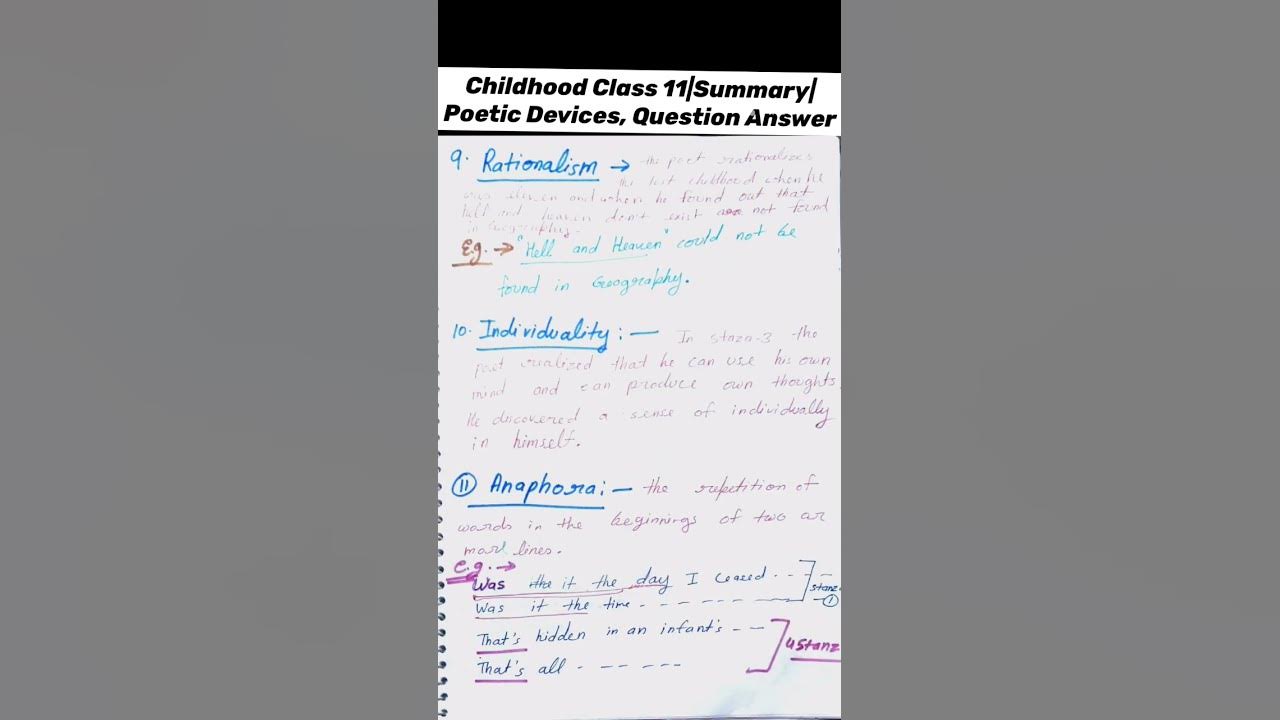 Childhood Class 11|Summary|
Poetic Devices, Question Answer
9. Rationalism → the poet rationalizes
the lost childhood when he
was eleven and when he found out that
hell and heaven don't exist are not found
in Geography.
E.g. → "Hell and Heaven" could not be
found in Geography.
10. Individuality :— In staza-3 the
poet realized that he can use his own
mind and can produce own thoughts
He discovered a sense of individually
in himself.
11 Anaphora:— the repetition of
words in the beginnings of two or
more lines.
e.g. →
Was the it the day I ceased - - - stanz
Was it the time - - - - - - - - 1
That's hidden in an infant's - -
That's all - - - - - - 4 Stanz